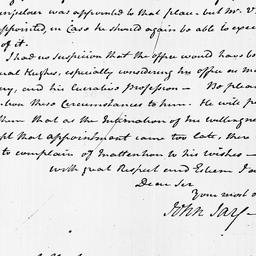 was appointed to that place but Mr. V
appointed, in Case he should again be able to exe
of it.
I had no Suspicion that the office would have b
Hughes, especially considering his office on
and his Quealiss Profession — Be plea
these Circumstances to him. He will
them that as the Intimation of his willingne
that appointment came too late, there
to complain of Inattention to his wishes —
with great Respect and Esteem I
Dear Sir
Your most o
John Jay —